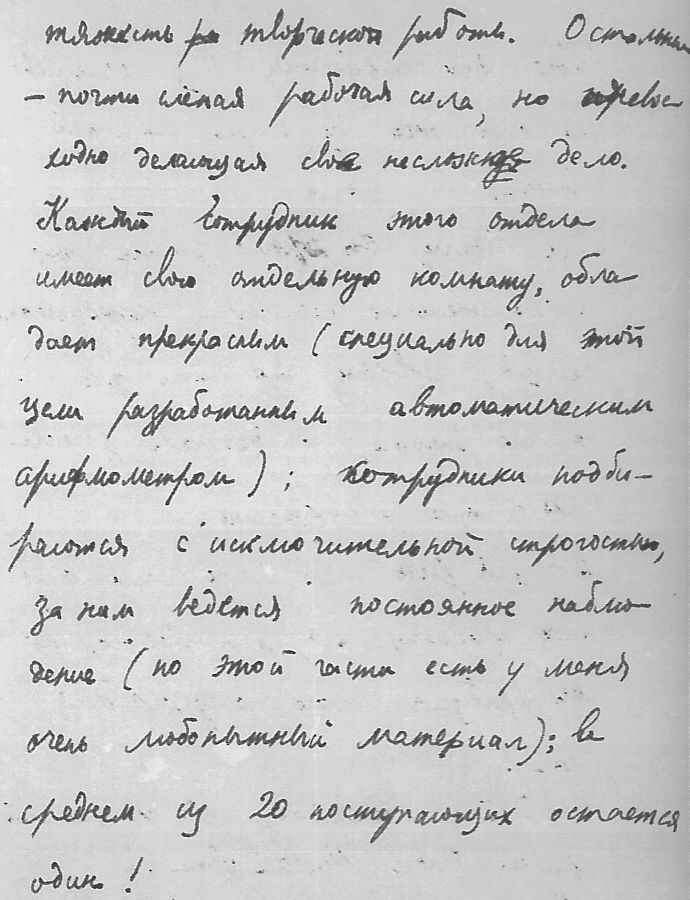 тяжесть творческой работы. Остальные
– почти слепая рабочая сила, но превос
ходно делающая свое несложное дело.
Каждый сотрудник этого отдела
имеет свою отдельную комнату, обла
дает прекрасным (специально для этой
цели разработанным автоматическим
арифмометром); сотрудники подби–
раются с исключительной строгостью,
за ним ведется постоянное наблю
дение (по этой части есть у меня
очень любопытный материал); в
среднем из 20 поступающих остается
один!